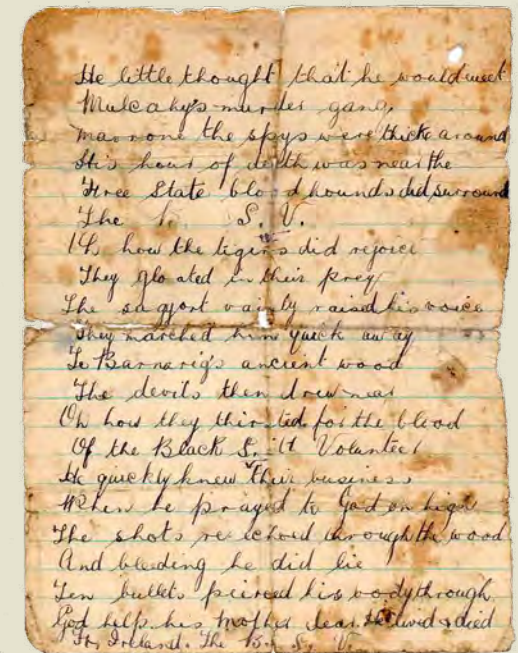 He little thought that he would meet
Mulcahy's murder gang,
mavrone the spys were thick around
His hour of death was near the
Free State blood hounds did surround
The B. S. V.
Oh how the tigers did rejoice
They gloated in their prey
The saggort vainly raised his voice
They marched him quick away
To Barnarig's ancient wood
The devils then drew near
Oh how they thirsted for the blood
Of the Black S. it Volunteer
He quickly knew their business
When he prayed to God on high
The shots re echoed through the wood
And bleeding he did lie
Ten bullets pierced his body through
God help his mother dear. He lived & died
For Ireland. The B. S. V.